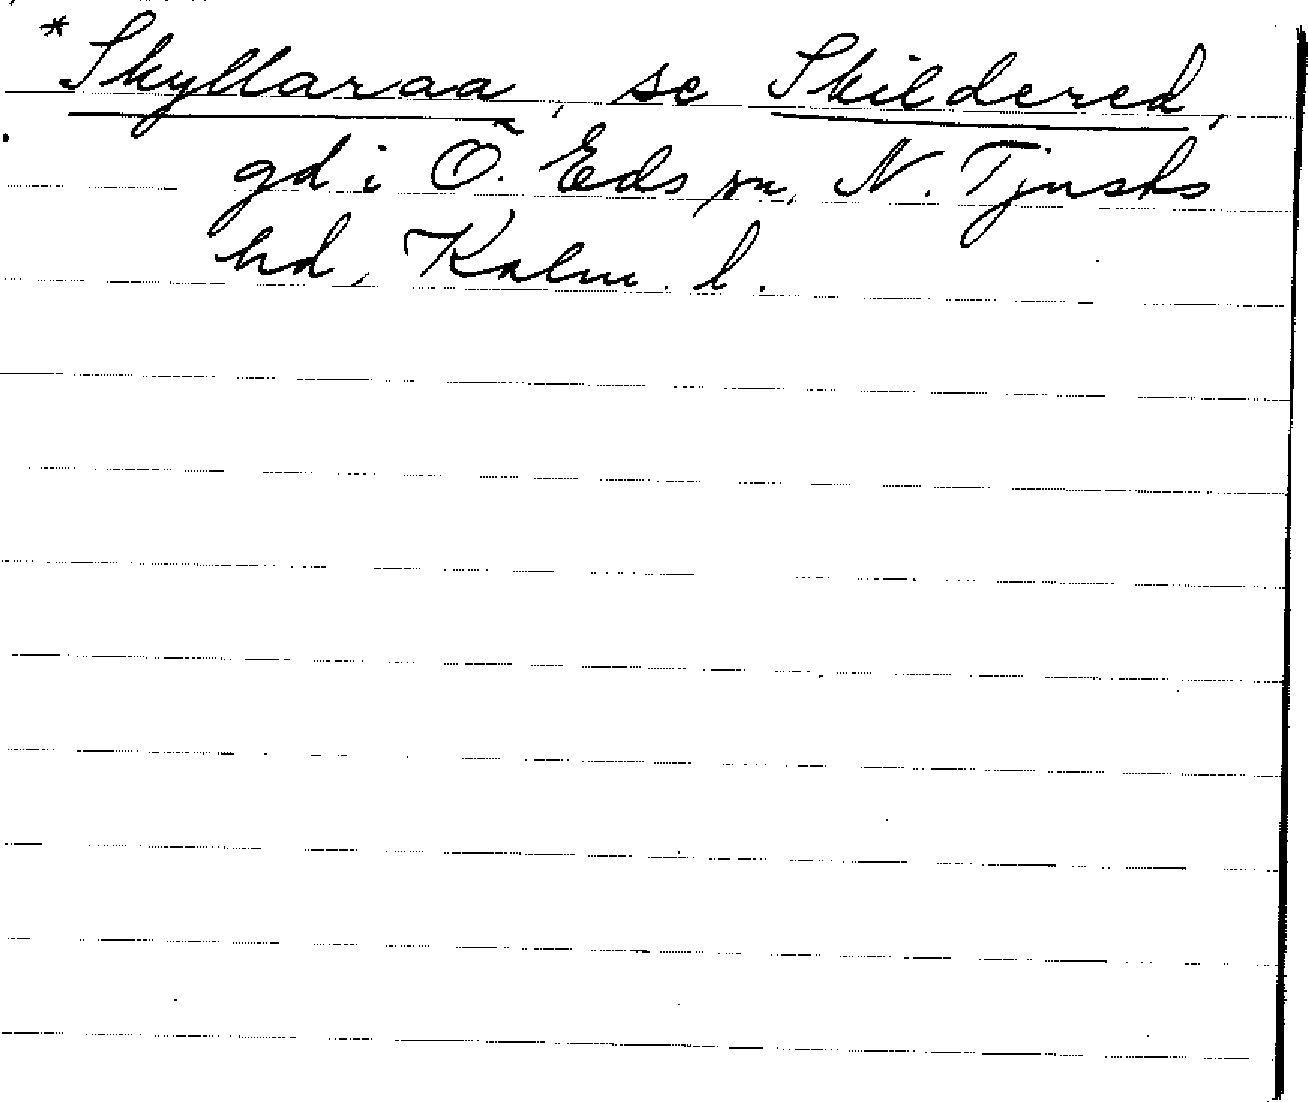 *Skyllaraa, se Skildered,
gd i Ö. Eds sn, N. Tjusts
hd, Kalm. l.